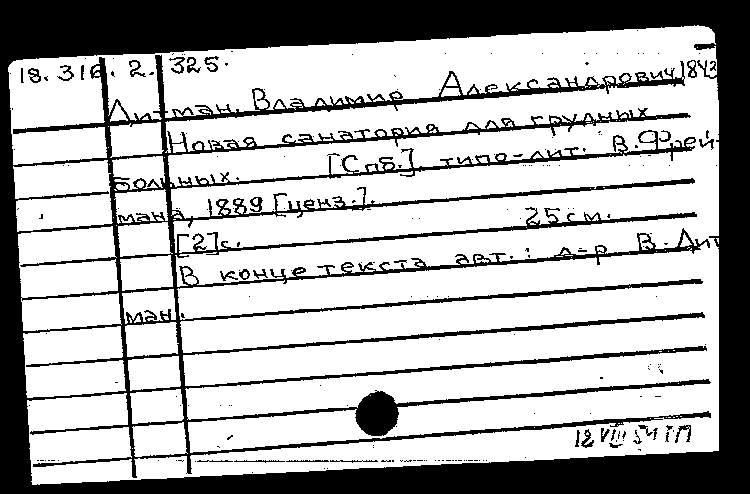 18. 316. 2. 325.
Дитман, Владимир Александрович, 1843
Новая санатория для грудных
больных. [Спб.], типо-лит. В. Фрей-
мана, 1889 [ценз.].
[2]с. 25 см.
В конце текста авт.: д-р В. Дит
ман.
12 VIII 54